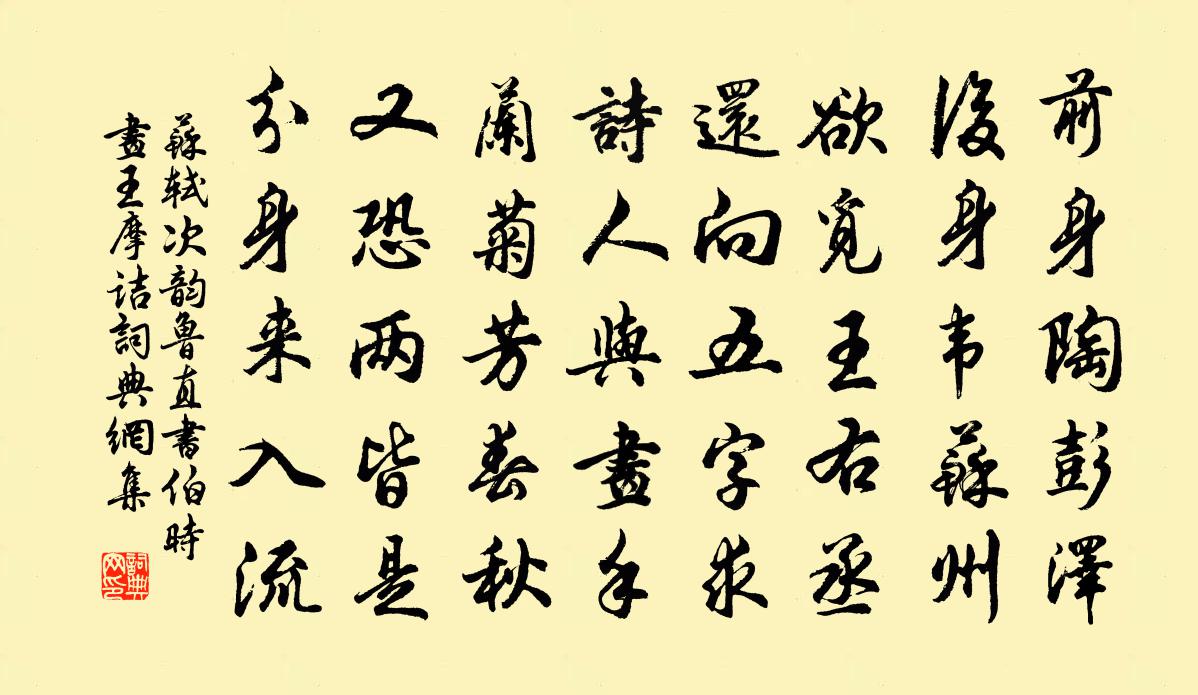 前身陶彭澤
後身韦蘇州
欲覓王右丞
還向五字求
詩人與畫手
蘭菊芳春秋
又恐两皆是
分身来入流
蘇軾次韵魯直書伯時
畫王摩诘詞典網集
詞典
网印